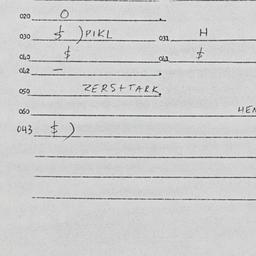 020 O
030 $ ) PIKL 031 H
040 $ 041 $
042 –
050 ZERSTTARK
060 HEN
043 $ )